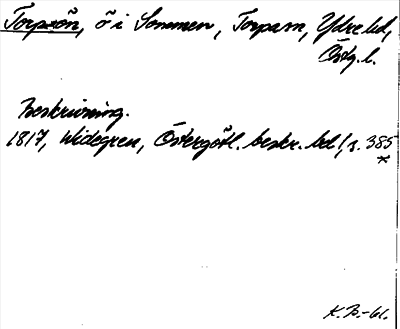 Torpön, ö i Sommen, Torpasn, Ydre hd,
Östg. l.
Beskrivning.
1817, Widegren, Östergötl. beskr. bd 1, s. 385
*
K.B.-61.